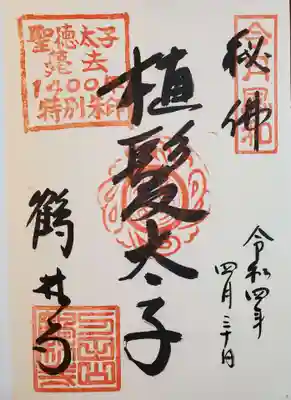 秘佛
令和四年
四月三十日
植髪太子
聖徳太子
薨去
1400年
特別朱印
鶴林寺